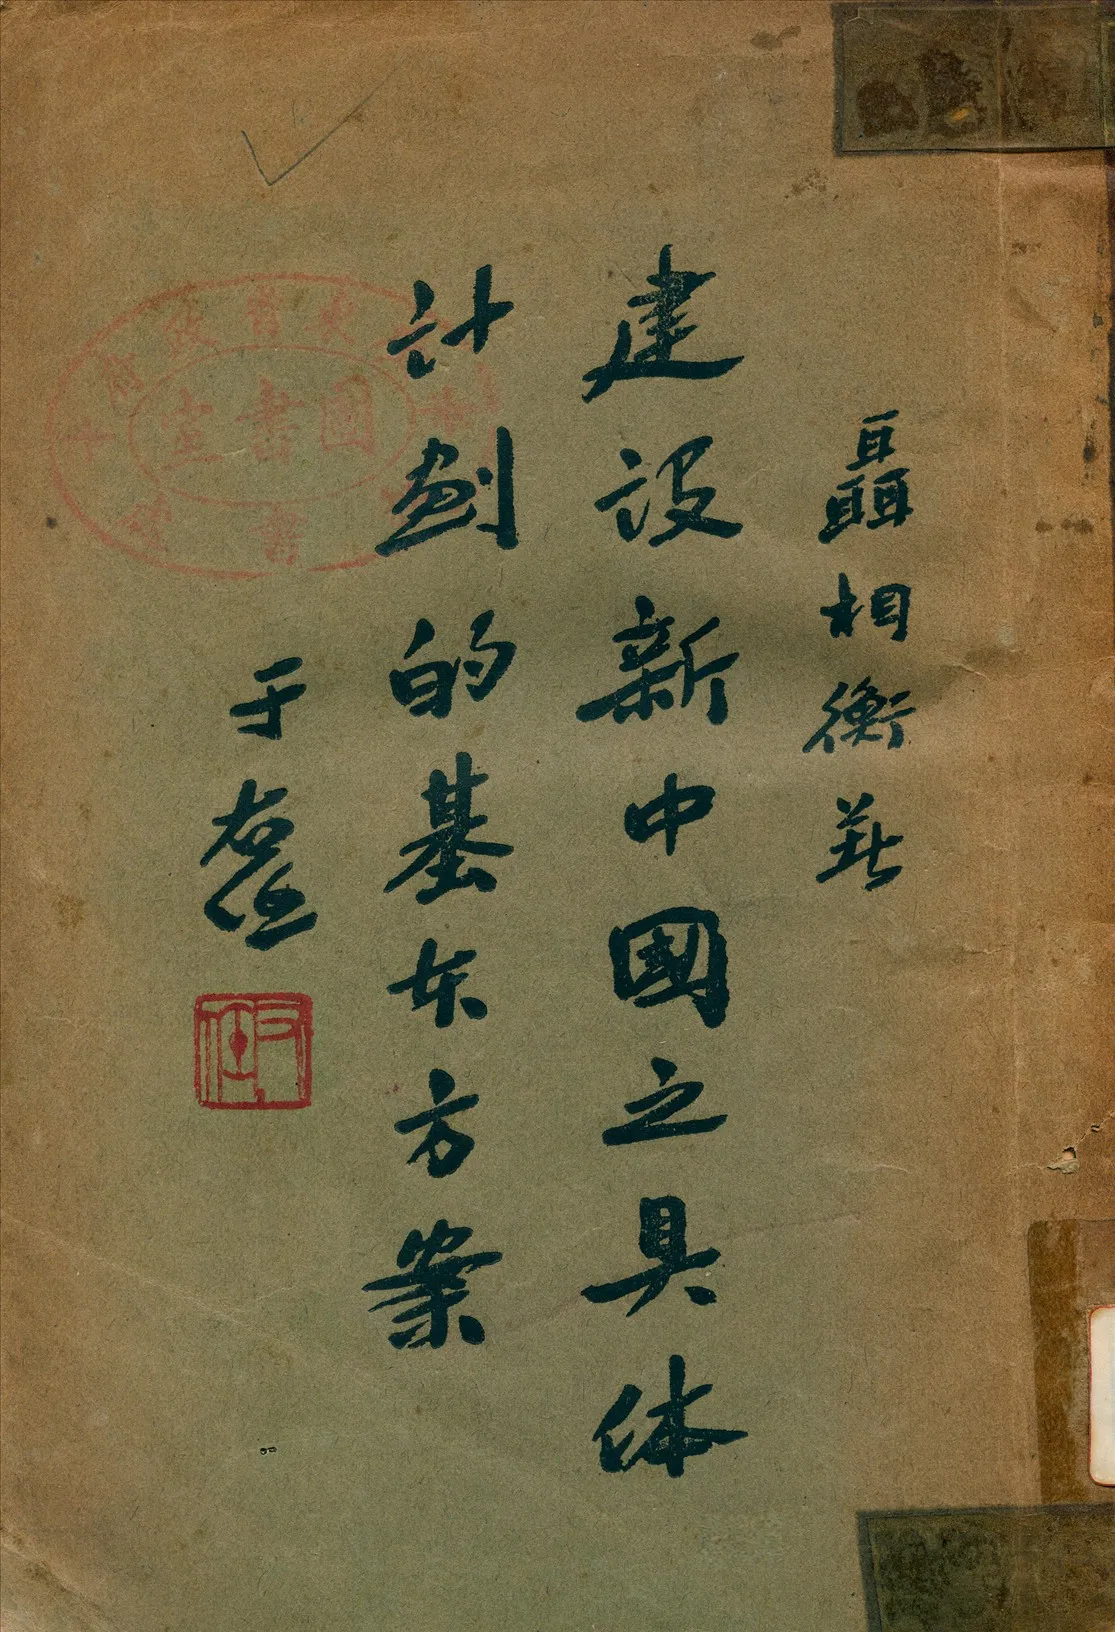 聶相衡著
建設新中國之具体
計劃的基本方案
于右任
右任
圖書室